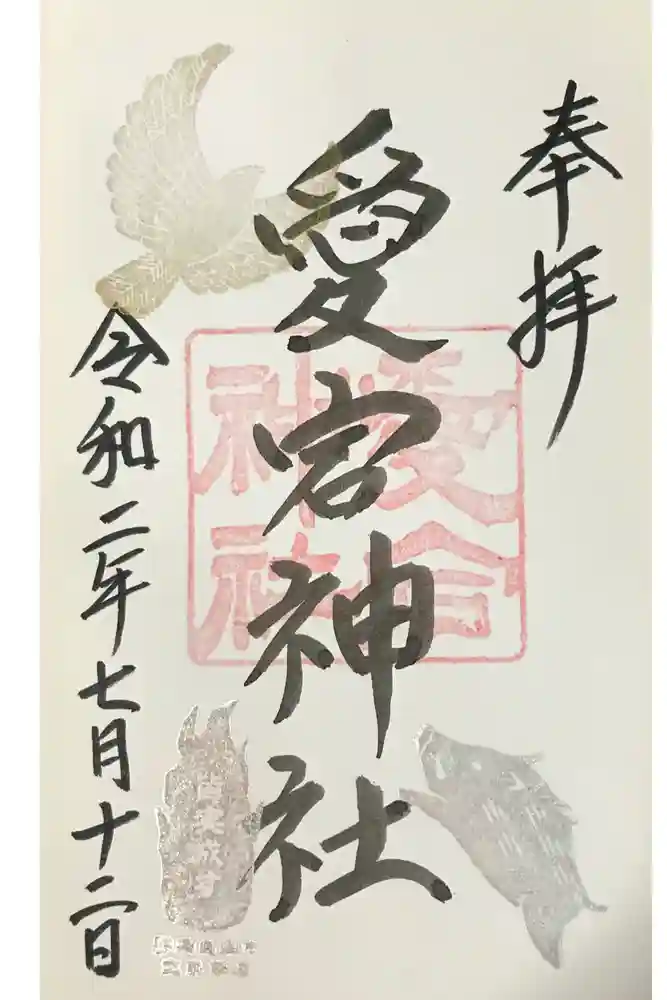 奉拝
愛宕神社
愛宕
神社
令和二年七月十二日